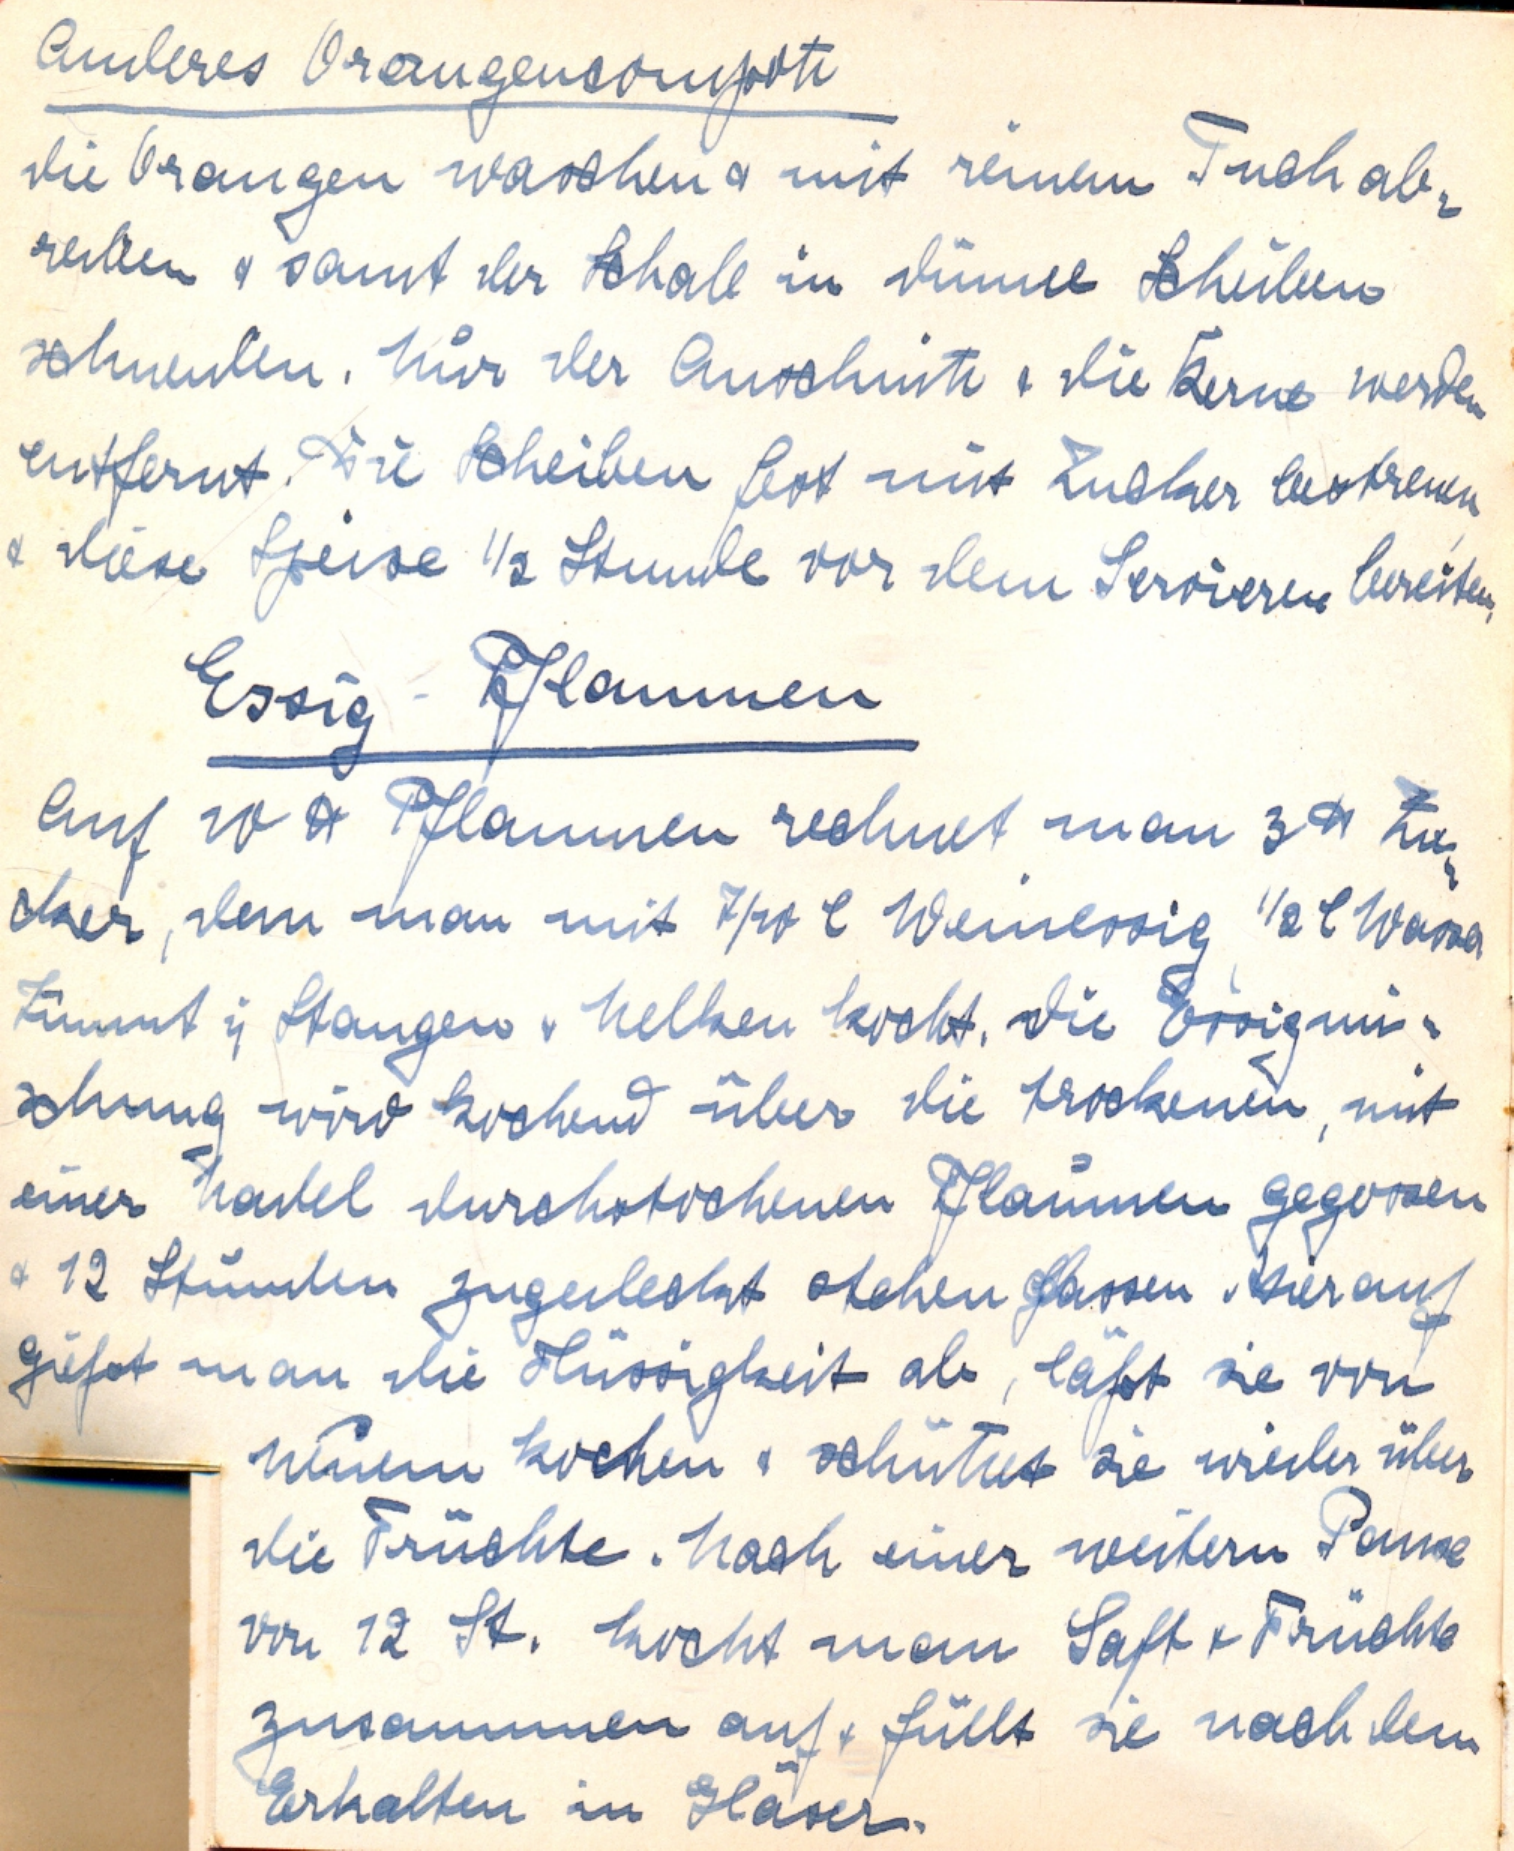 Anderes Orangencompott
die Orangen waschen & mit reinem Tuch ab-
reiben & samt der Schale in dünne Scheiben
schneiden. Nur der Anschnitt & die Kerne werden
entfernt. Die Scheiben fest mit Zucker bestreuen
& diese Speise 1/2 Stunde vor dem Servieren bereiten.
Essig - Pflaumen
Auf 10 ℔ Pflaumen rechnet man 3 ℔ Zu-
cker, den man mit 7/10 l Weinessig, 1/2 l Wasser
Zimmt in Stangen & Nelken kocht. Die Essigmi-
schung wird kochend über die trockenen, mit
einer Nadel durchstochenen Pflaumen gegossen
& 12 Stunden zugedeckt stehen lassen. Hierauf
gießt man die Flüssigkeit ab, läßt sie von
neuem kochen & schüttet sie wieder über
die Früchte. Nach einer weitern Pause
von 12 St. kocht man Saft & Früchte
zusammen auf & füllt sie nach dem
Erkalten in Gläser.